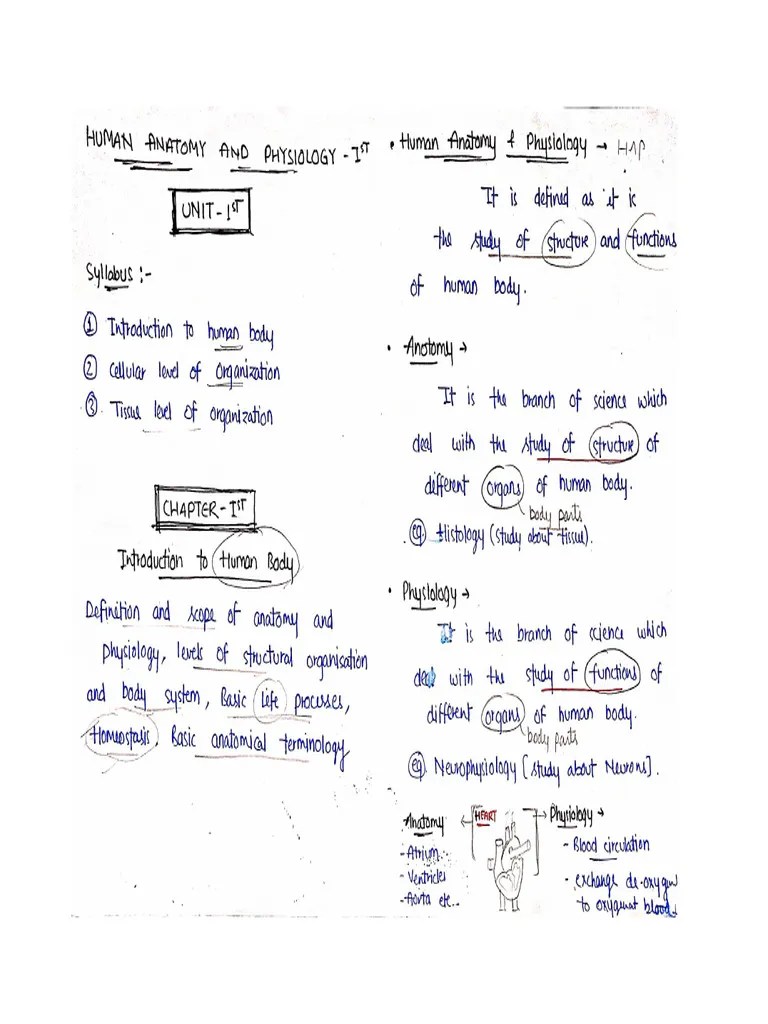 HUMAN ANATOMY AND PHYSIOLOGY - IST
UNIT - IST
Syllabus :-
① Introduction to human body
② Cellular level of organization
③ Tissue level of organization
CHAPTER - IST
Introduction to Human Body
Definition and scope of anatomy and
physiology, levels of structural organisation
and body system, Basic life processes,
Homeostasis, Basic anatomical terminology
• Human Anatomy & Physiology → HAP
It is defined as it is
the study of structure and functions
of human body.
• Anatomy →
It is the branch of science which
deal with the study of structure of
different organs of human body.
body parts
eg. Histology (study about tissue).
• Physiology →
It is the branch of science which
deal with the study of functions of
different organs of human body.
body parts
eg. Neurophysiology [study about Neurons].
Anatomy ← HEART → Physiology →
- Atrium
- Ventricles
- Aorta etc..
- Blood circulation
- exchange de-oxygen
to oxygenat blood